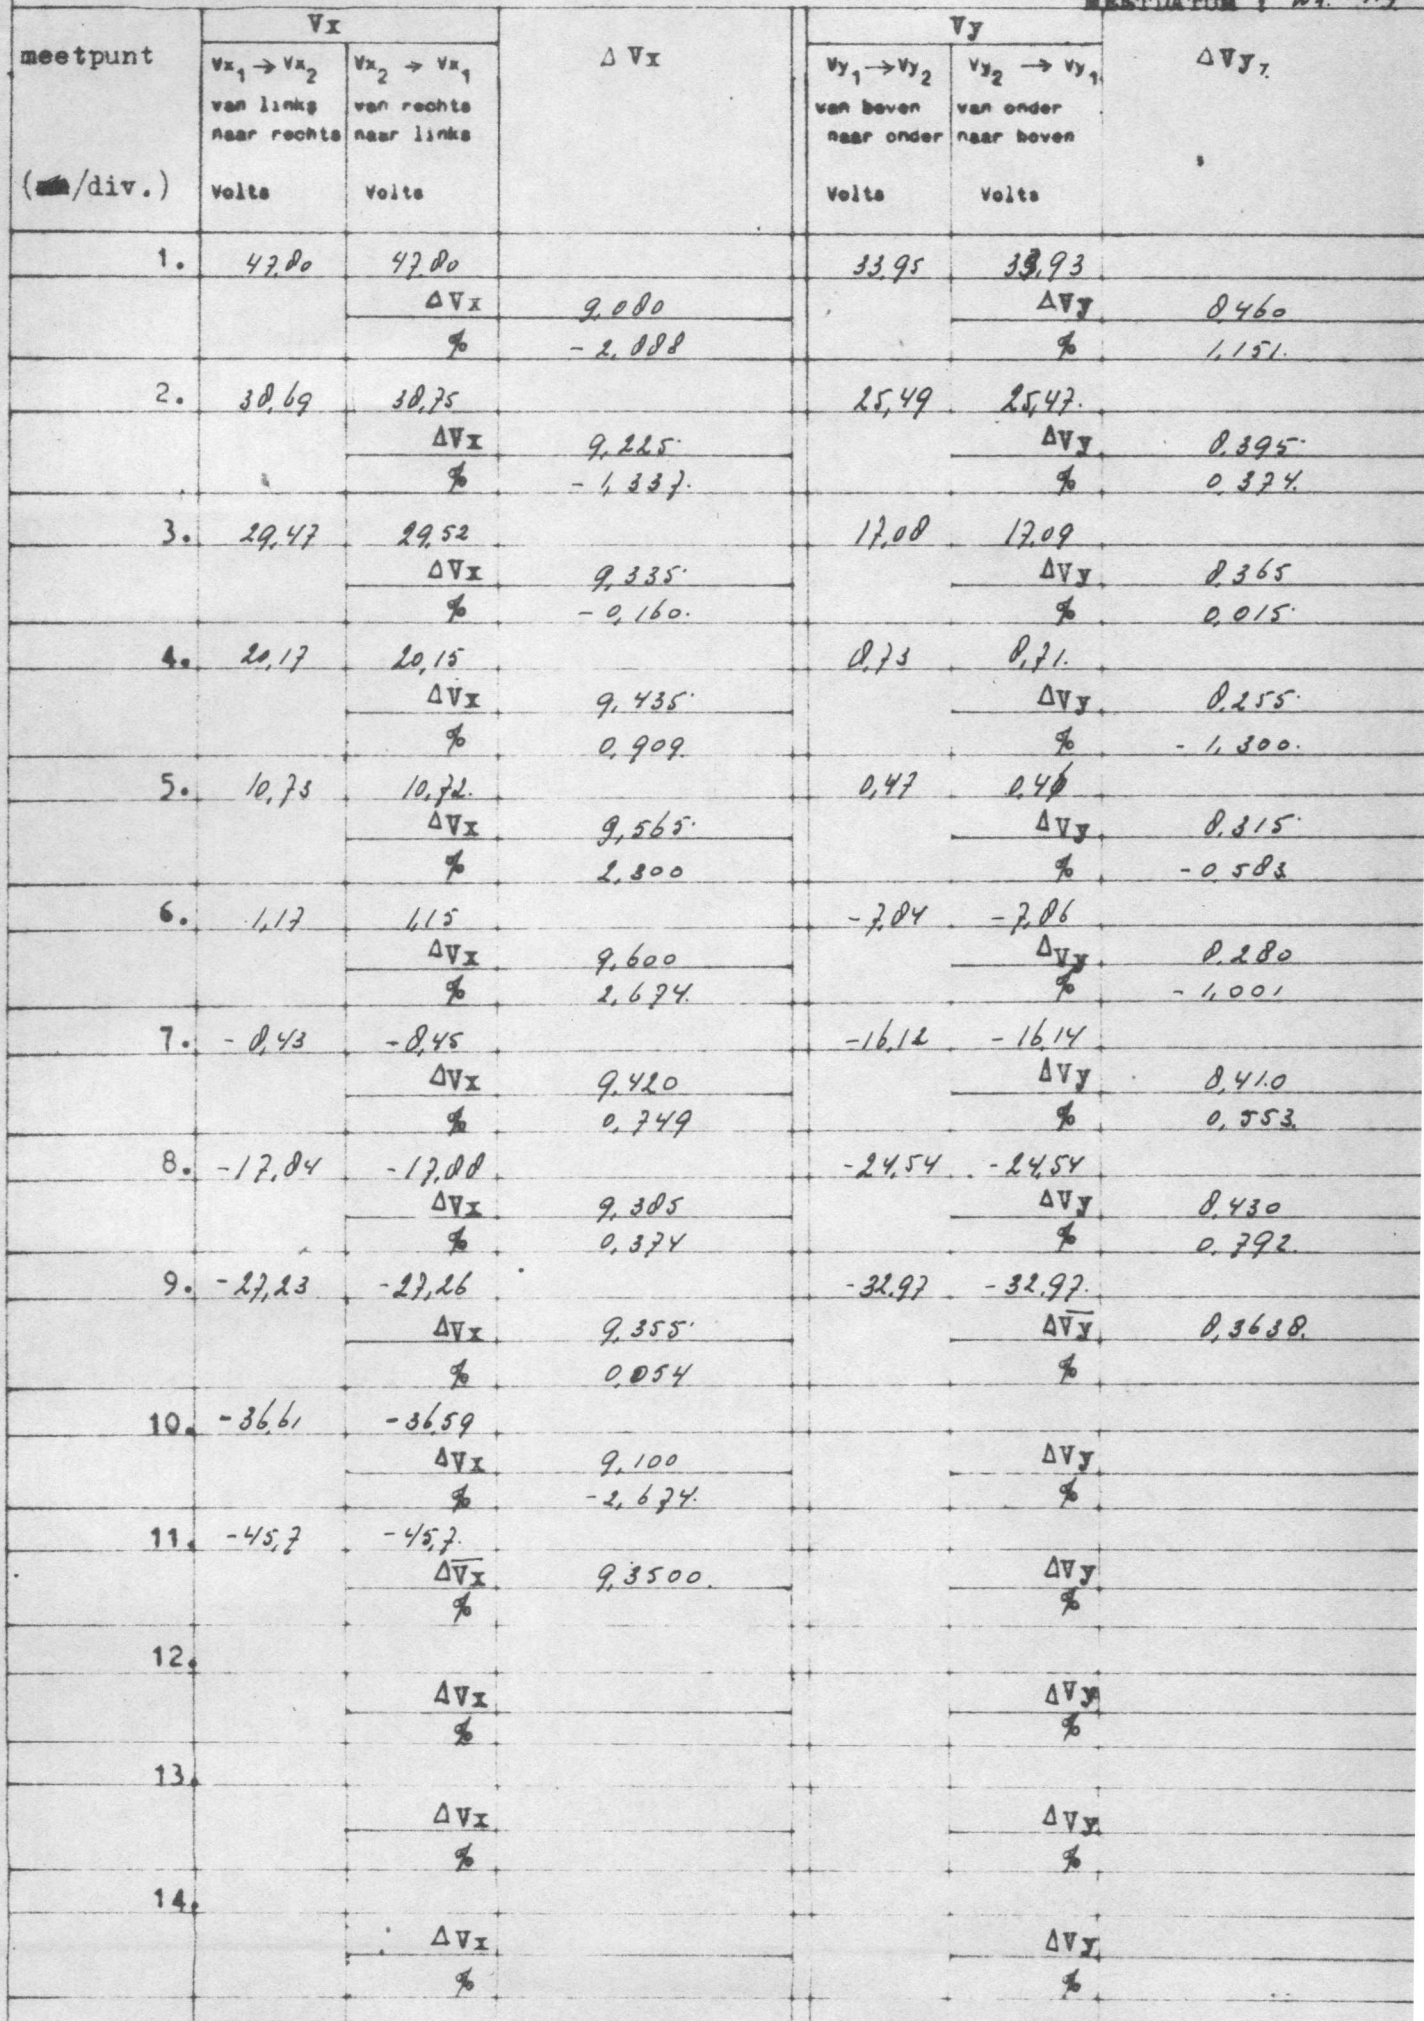 MEETDATUM :
Vx Vy
meetpunt Vx1 → Vx2 Vx2 → Vx1 Δ Vx Vy1 → Vy2 Vy2 → Vy1 Δ Vy
van links van rechts van boven van onder
naar rechts naar links naar onder naar boven
( /div.) Volts Volts Volts Volts
1. 47,80 47,80 33,95 33,93
ΔVx 9,080 ΔVy 8,460
% - 2,888 % 1,151.
2. 38,69 38,75 25,49 25,47.
ΔVx 9,225 ΔVy 8,395
% - 1,337. % 0,374.
3. 29,47 29,52 17,08 17,09
ΔVx 9,335 ΔVy 8,365
% - 0,160. % 0,015
4. 20,17 20,15 8,73 8,71.
ΔVx 9,435 ΔVy 8,255
% 0,909. % - 1,300.
5. 10,73 10,72. 0,47 0,46
ΔVx 9,565 ΔVy 8,315
% 2,300 % - 0,583
6. 1,17 1,15 -7,84 -7,86
ΔVx 9,600 ΔVy 8,280
% 2,674. % - 1,001
7. - 8,43 -8,45 -16,12 - 16,14
ΔVx 9,420 ΔVy 8,410
% 0,749 % 0,553.
8. -17,84 -17,88 -24,54 - 24,54
ΔVx 9,385 ΔVy 8,430
% 0,374 % 0,792.
9. -27,23 -27,26 -32,97 - 32,97.
ΔVx 9,355 ΔV̅y̅ 8,3638.
% 0,054 %
10. -36,61 -36,59
ΔVx 9,100 ΔVy
% -2,674. %
11. -45,7 -45,7.
ΔV̅x̅ 9,3500. ΔVy
% %
12.
ΔVx ΔVy
% %
13.
ΔVx ΔVy
% %
14.
ΔVx ΔVy
% %